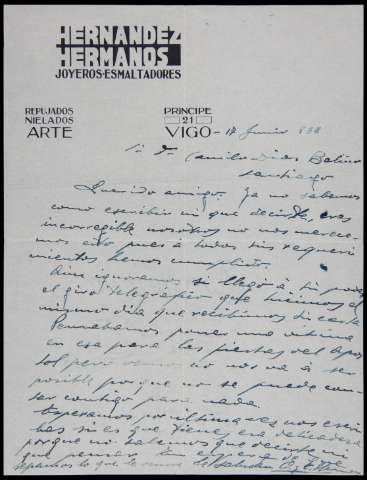 HERNANDEZ
HERMANOS
JOYEROS-ESMALTADORES
REPUJADOS
NIELADOS
ARTE
PRINCIPE
21
VIGO- 17 Junio 932
Sr Dn Camilo Diaz Baliño
Santiago
Querido amigo: Ya no sabemos
como escribir ni que decirte, eres
incorregible nosotros no nos merece-
mos esto pues á todos tus requeri-
mientos hemos cumplido.
Aun ignoramos si llegó á tu poder
el giro telegráfico que hicimos el
mismo dia que recibimos tu carta
Pensabamos poner una vitrina
en esa para las fiestas del Após-
tol pero no nos vá á ser
posible porque no se puede con-
tar contigo para nada.
Esperamos por ultima vez nos escri-
bas si es que tienes esa delicadeza
porque no sabemos que decirte ni
que pensar. En espera de
sepamos lo que te saludan